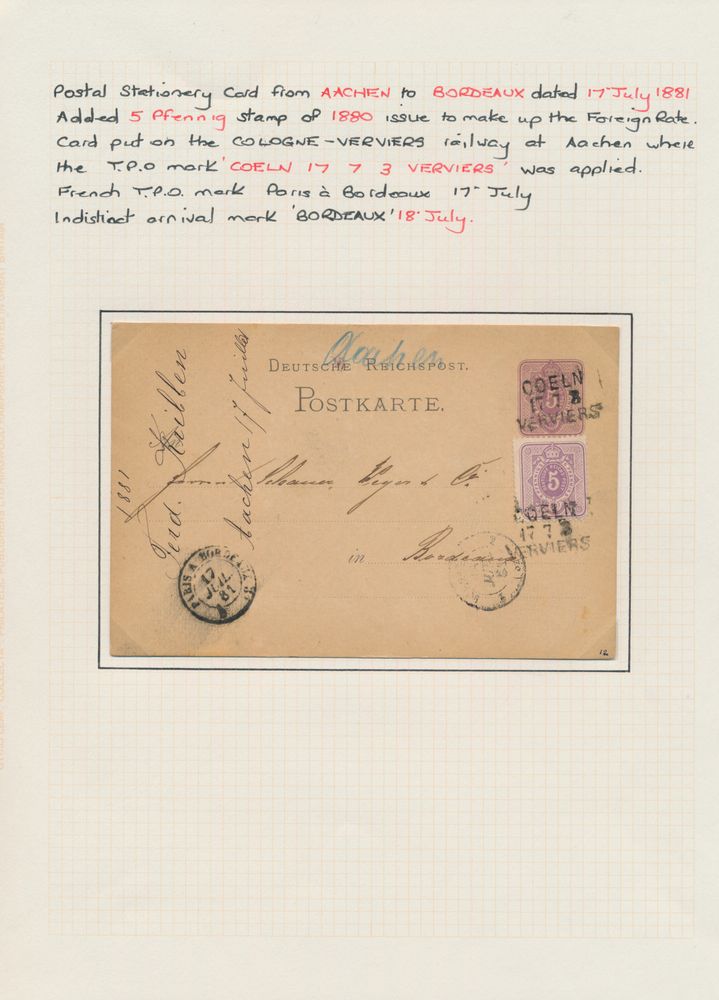 Postal Stationery Card from AACHEN to BORDEAUX dated 17th July 1881
Added 5 Pfennig stamp of 1880 issue to make up the Foreign Rate.
Card put on the COLOGNE-VERVIERS railway at Aachen where
the T.P.O mark 'COELN 17 7 3 VERVIERS' was applied.
French T.P.O. mark Paris à Bordeaux 17th July
Indistinct arrival mark 'BORDEAUX' 18th July.
Aachen
DEUTSCHE REICHSPOST.
POSTKARTE.
5
COELN
17 7 3
VERVIERS
5
COELN
17 7 3
VERVIERS
in Bordeaux
1881
Ferd.
Aachen 17 Juillet
PARIS A BORDEAUX
17
JUIL
81
12